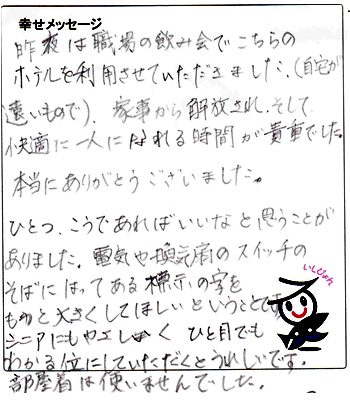 幸せメッセージ
昨夜は職場の飲み会でこちらの
ホテルを利用させていただきました。(自宅が
遠いもので)。家事から解放され、そして
快適に一人になれる時間が貴重でした。
本当にありがとうございました。
ひとつ、こうであればいいなと思うことが
ありました。電気や換気扇のスイッチの
そばにはってある標示の字を
もっと大きくしてほしいということです。
シニアにもやさしく ひと目でも
わかる位にしていただくとうれしいです。
部屋着は使いませんでした。
いしじょん